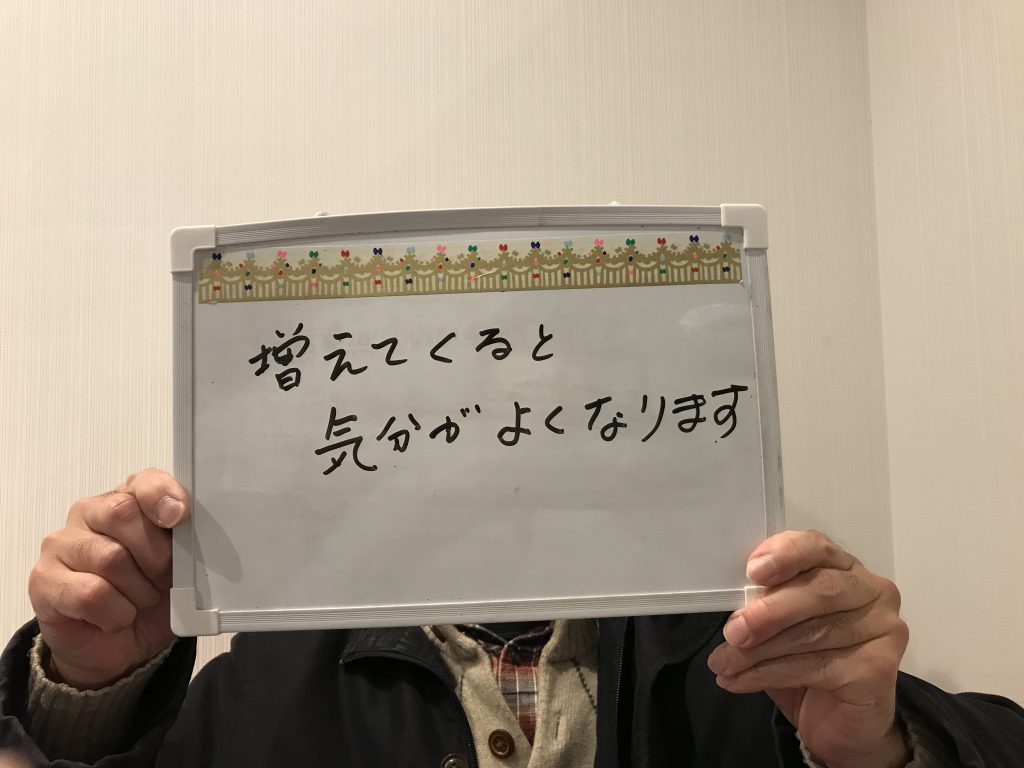 増えてくると
気分がよくなります